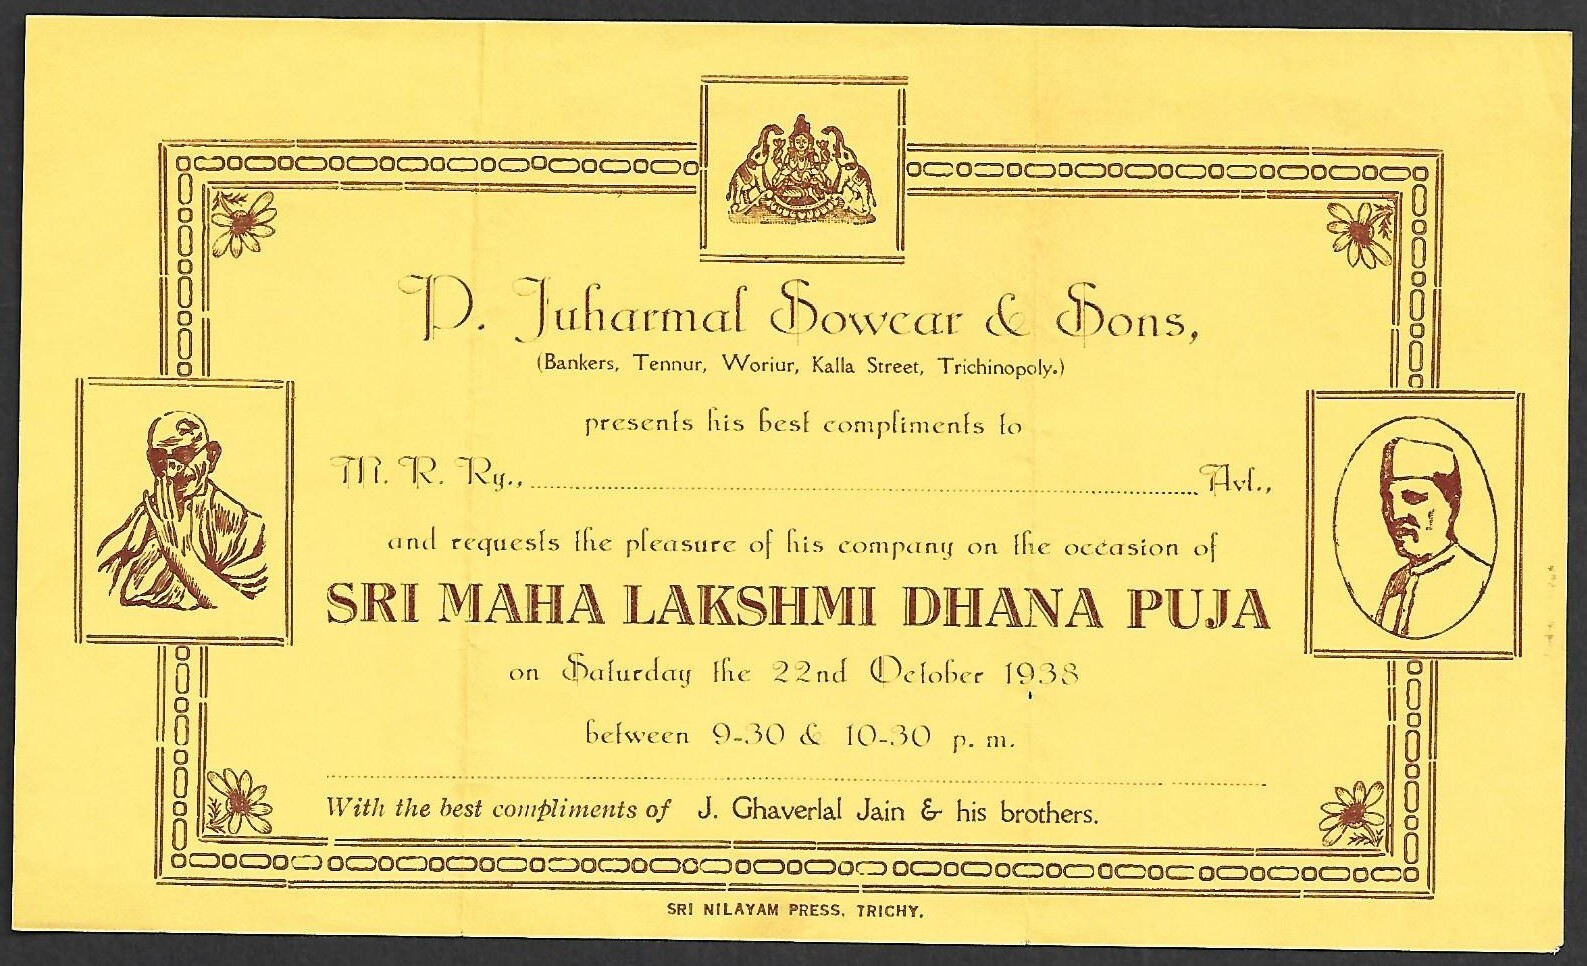 P. Juharmal Sowcar & Sons,
(Bankers, Tennur, Woriur, Kalla Street, Trichinopoly.)
presents his best compliments to
M. R. Ry., Avl.,
and requests the pleasure of his company on the occasion of
SRI MAHA LAKSHMI DHANA PUJA
on Saturday the 22nd October 1938
between 9-30 & 10-30 p. m.
With the best compliments of J. Ghaverlal Jain & his brothers.
SRI NILAYAM PRESS, TRICHY.